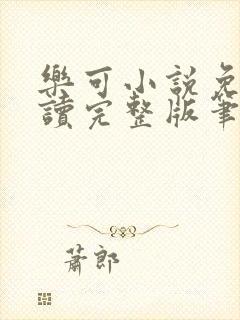 樂可小說免
讀完整版筆
蕭郎